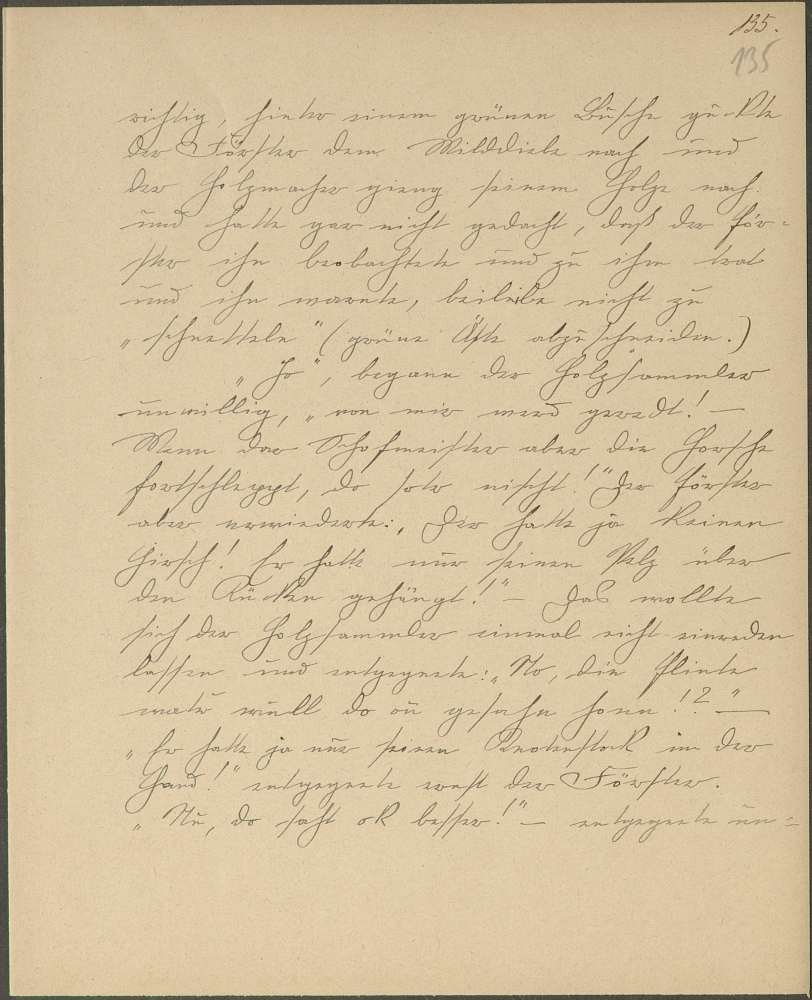 135.
135
richtig, hinter einem grünen Busche guckte
der Förster dem Wilddiebe nach und
der Holzmacher gieng seinem Holze nach
und hatte gar nicht gedacht, daß der För-
ster ihn beobachtete und zu ihm trat
und ihn warnte, beileibe nicht zu
„schnetteln“ (grüne Äste abzuschneiden.)
„Jo“, begann der Holzsammler
unwillig, „von mir werd geredt! —
Wenn dar Schofmeister aber die Horsche
fortschleppt, do sotr nischt!“ Der Förster
aber erwiederte: „Der hatte ja keinen
Hirsch! Er hatte nur seinen Pelz über
den Rücken gehängt!“ — Das wollte
sich der Holzsammler einmal nicht einreden
lassen und entgegnete: „No, die Flinte
watr wull do ou gesahn honn!? —“
„Er hatte ja nur seinen Knotenstock in der
Hand!“ entgegnete ernst der Förster.
„Nu, do saht ok besser!“ — entgegnete un-